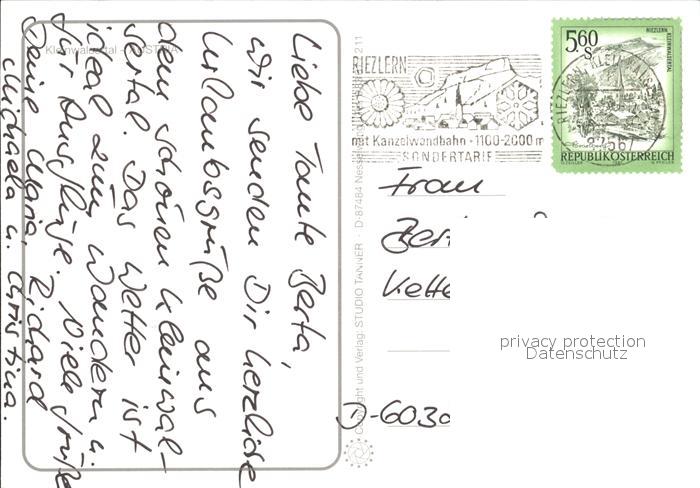 Kleinwalsertal - AUSTRIA
Liebe Tante Berta,
wir senden Dir herzliche
Urlaubsgrüße aus
dem schönen Kleinwal-
sertal. Das Wetter ist
ideal zum Wandern u.
für Ausflüge. Viele Grüße
Deine Maria, Richard
Michaela u. Christina.
Copyright und Verlag: STUDIO TANNER · D-87484
211
RIEZLERN
mit Kanzelwandbahn · 1100-2000 m
SONDERTARIF
5,60
S
RIEZLERN
KLEINWALSERTAL
REPUBLIK ÖSTERREICH
RIEZLERN
Frau
Ber
Kette
D-6030
privacy protection
Datenschutz